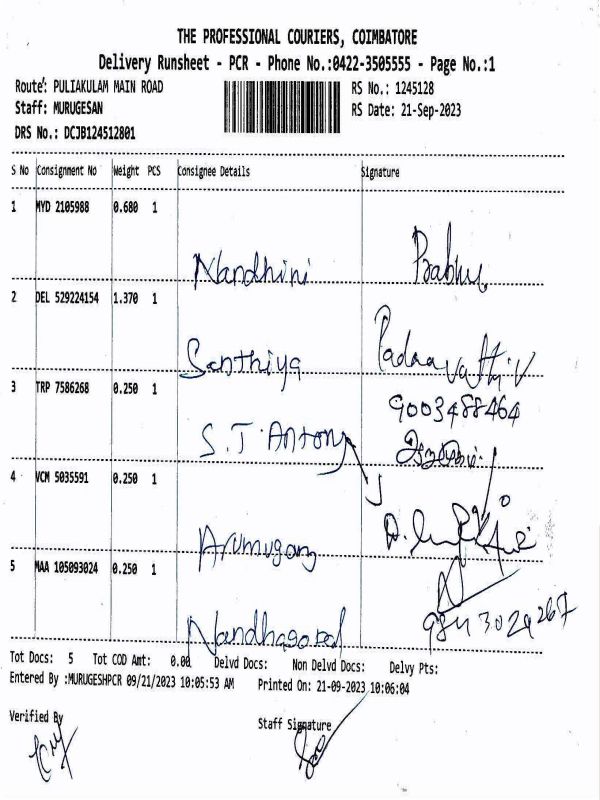 THE PROFESSIONAL COURIERS, COIMBATORE
Delivery Runsheet - PCR - Phone No.:0422-3505555 - Page No.:1
Route: PULIAKULAM MAIN ROAD RS No.: 1245128
Staff: MURUGESAN RS Date: 21-Sep-2023
DRS No.: DCJB124512801
S No Consignment No Weight PCS Consignee Details Signature
1 MYD 2105988 0.680 1
Nandhini Prabhu
2 DEL 529224154 1.370 1
Santhiya Padmavathi.V
3 TRP 7586268 0.250 1 9003488464
S.T. Antony
4 VCM 5035591 0.250 1
Arumugam
5 MAA 105093024 0.250 1
Nandhagopal 9843029267
Tot Docs: 5 Tot COD Amt: 0.00 Delvd Docs: Non Delvd Docs: Delvy Pts:
Entered By :MURUGESHPCR 09/21/2023 10:05:53 AM Printed On: 21-09-2023 10:06:04
Verified By Staff Signature